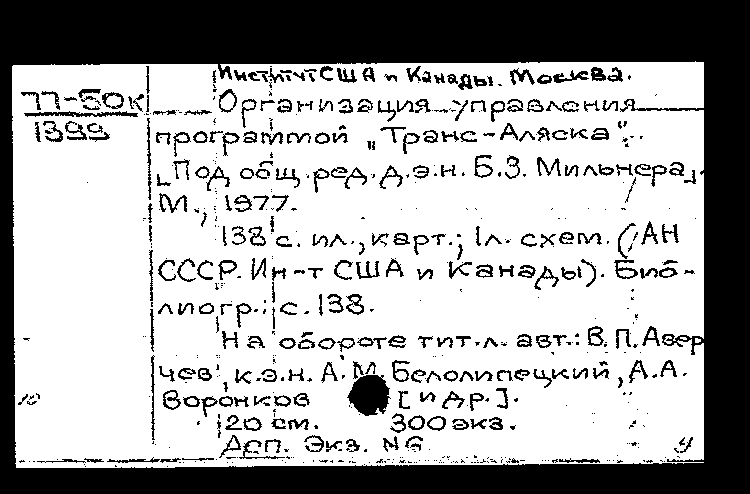 Институт США и Канады. Москва.
77-50к
1399
Организация управления
программой „Транс-Аляска".
[Под общ. ред. д.э.н. Б.З. Мильнера].
М., 1977.
138 с. ил., карт.; 1л. схем. (АН
СССР. Ин-т США и Канады). Биб-
лиогр.: с. 138.
На обороте тит.л. авт.: В.П. Авер
чев, к.э.н. А.М. Белолипецкий, А.А.
Воронков [и др.].
10
20 см. 300 экз.
Деп. Экз. №6